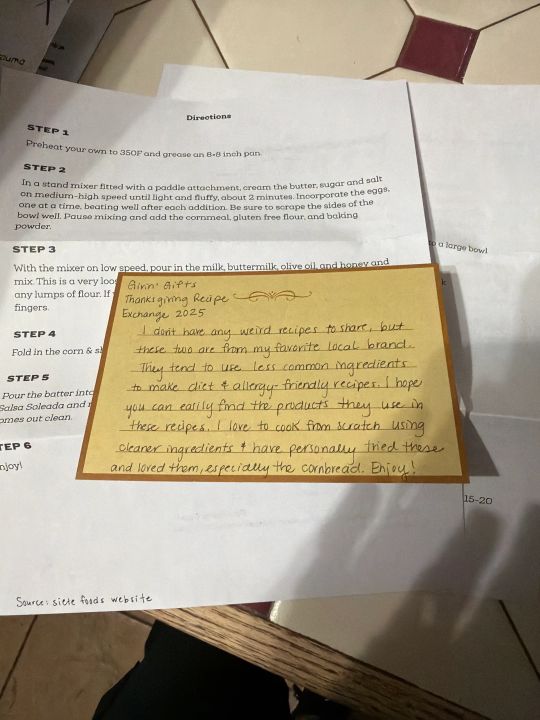 auma
Directions
STEP 1
Preheat your own to 350F and grease an 8×8 inch pan.
STEP 2
In a stand mixer fitted with a paddle attachment, cream the butter, sugar and salt
on medium-high speed until light and fluffy, about 2 minutes. Incorporate the eggs,
one at a time, beating well after each addition. Be sure to scrape the sides of the
bowl well. Pause mixing and add the cornmeal, gluten free flour, and baking
powder.
STEP 3
With the mixer on low speed, pour in the milk, buttermilk, olive oil, and honey and
mix. This is a very loos
any lumps of flour. If
fingers.
STEP 4
Fold in the corn & s
STEP 5
Pour the batter into
Salsa Soleada and
omes out clean.
TEP 6
njoy!
to a large bowl
k
15-20
Givin' Gifts
Thanksgiving Recipe
Exchange 2025
I don't have any weird recipes to share, but
these two are from my favorite local brand.
They tend to use less common ingredients
to make diet & allergy-friendly recipes. I hope
you can easily find the products they use in
these recipes. I love to cook from scratch using
cleaner ingredients & have personally tried these
and loved them, especially the cornbread. Enjoy!
Source: siete foods website